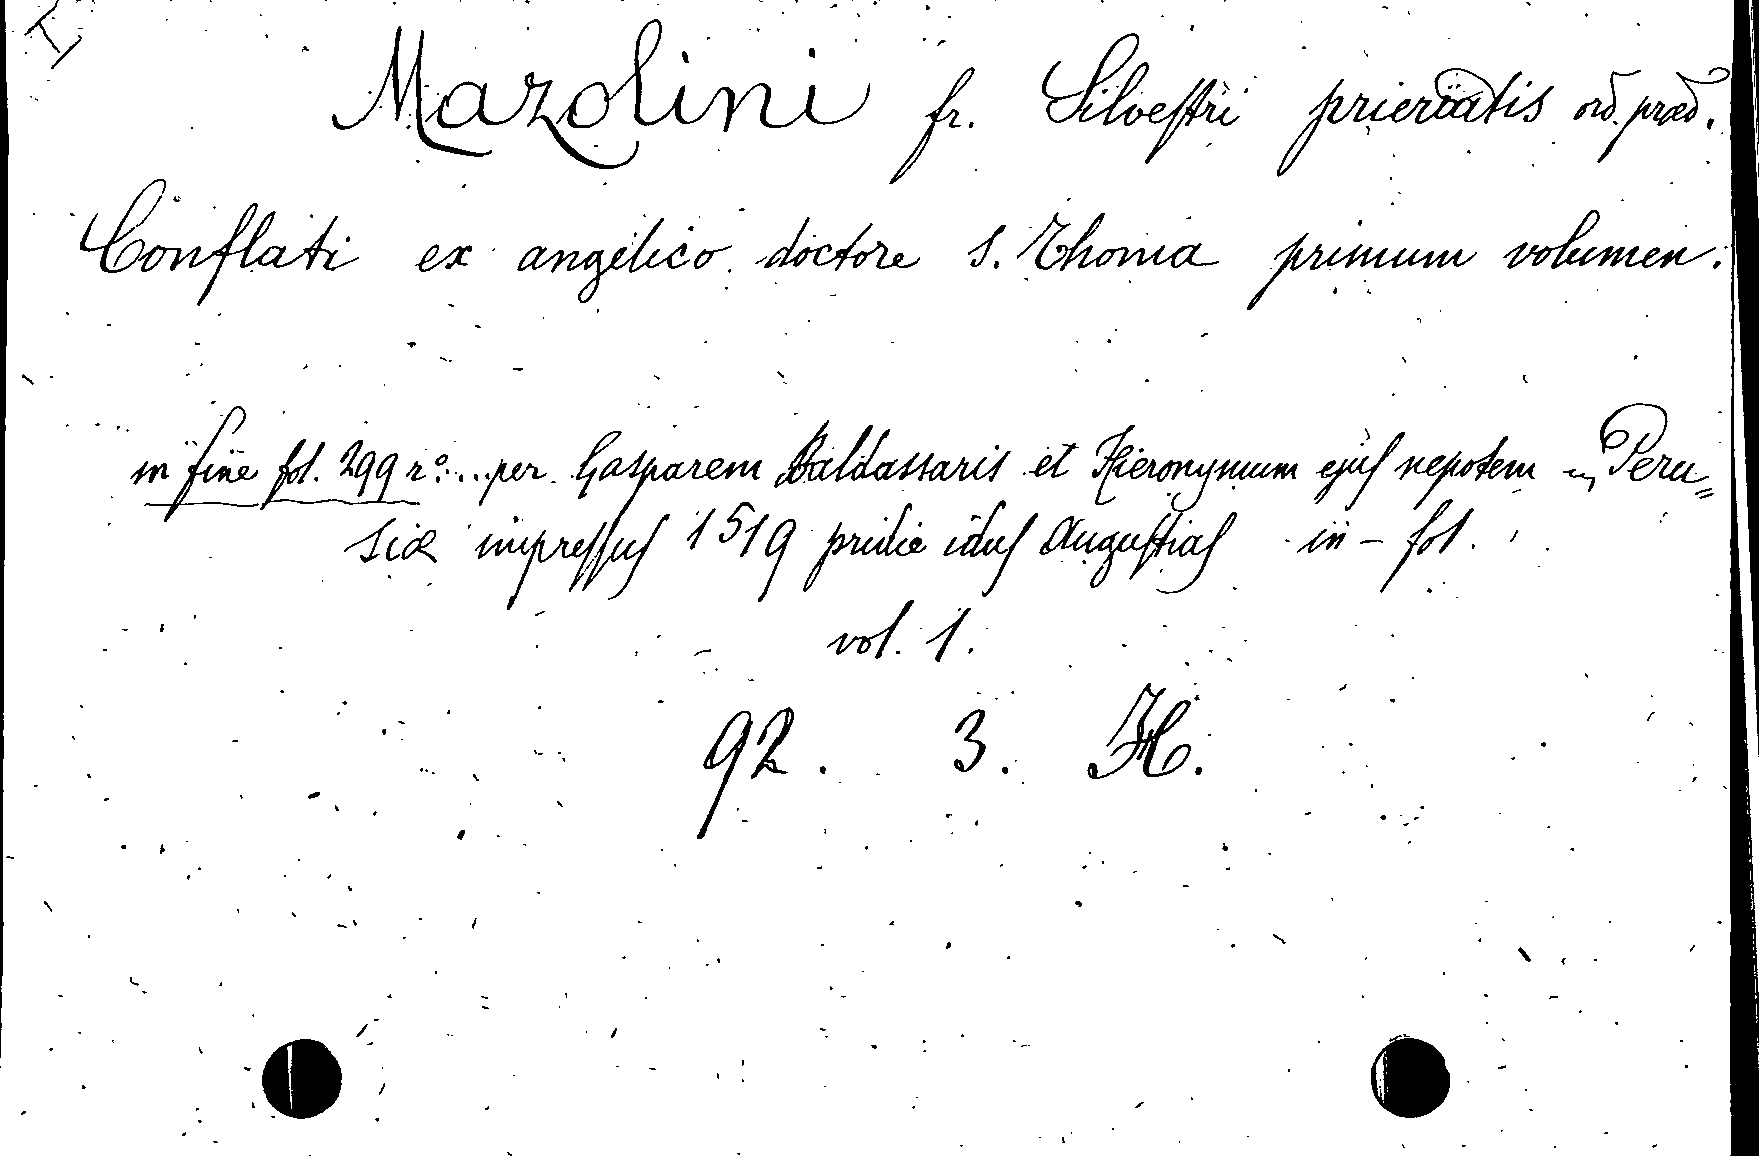 I
Mazolini fr. Silvestri prieriatis ord. præd.
Conflati ex angelico doctore S. Thoma primum volumen.
in fine fol. 299 rº... per Gasparem Baldassaris et Hieronymum ejus nepotem in Peru=
siæ impressus 1519 pridie idus Augustias in-fol.
vol. 1.
92. 3. H.